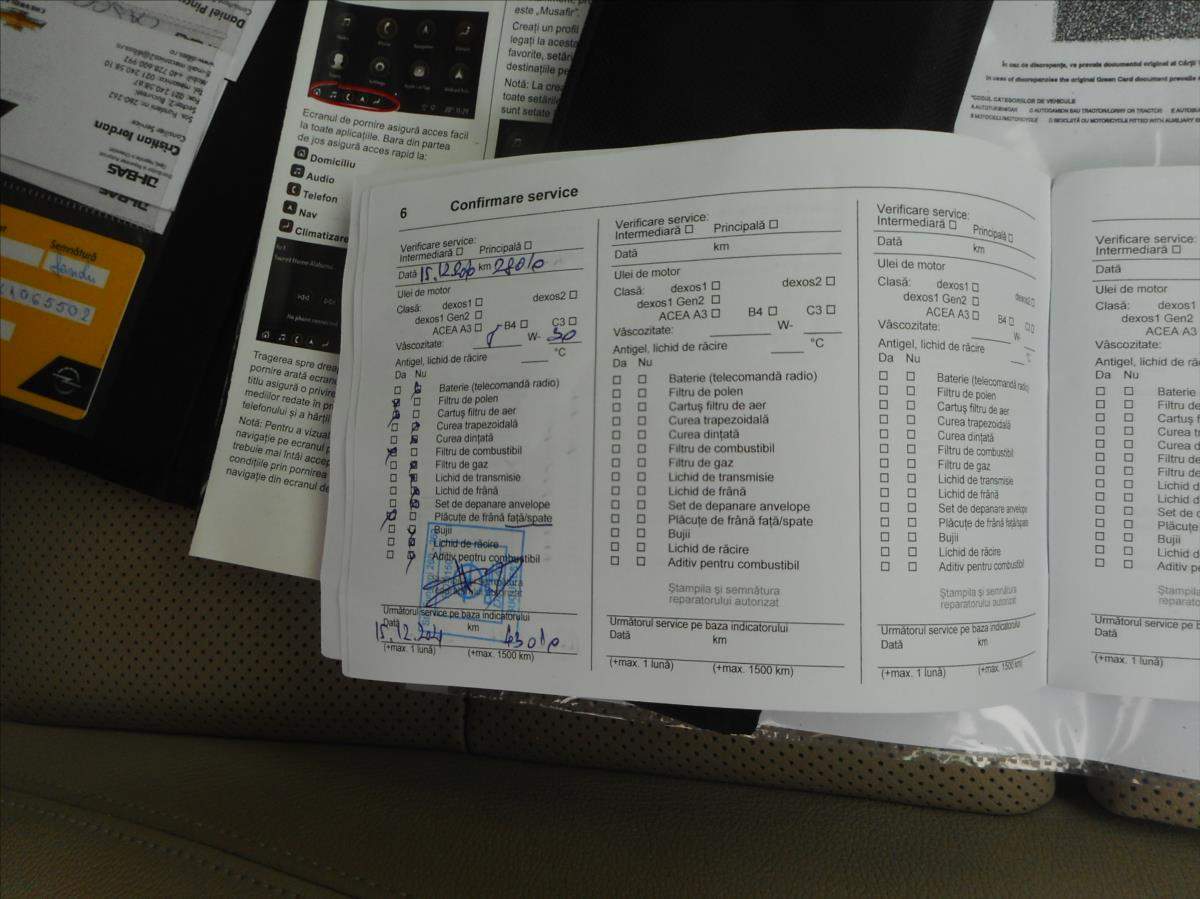 este „Musafir”.
Creați un profil
legați la acesta
favorite, setări
destinațiile pe
toate setările
sunt setate
Ecranul de pornire asigură acces facil
la toate aplicațiile. Bara din partea
de jos asigură acces rapid la:
Domiciliu
Audio
Telefon
Nav
Climatizare
Tragerea spre drea
pornire arată ecranu
titlu asigură o privire
mediilor redate în pr
telefonului și a hărții
Notă: Pentru a vizual
navigație pe ecranul p
trebuie mai întâi accep
condițiile prin pornirea
navigație din ecranul de
Daniel
Cristian Iordan
Consilier Service
DI-BAS
Semnătură
În caz de discrepanțe, va prevala documentul original al Cărții V
In case of discrepancies the original Green Card document prevails
*CODUL CATEGORIILOR DE VEHICULE
6 Confirmare service
Verificare service:
Intermediară Principală
Dată 15.12.2020 km 28010
Ulei de motor
Clasă: dexos1 dexos2
dexos1 Gen2
ACEA A3 B4 C3
Vâscozitate: W- 30
Antigel, lichid de răcire °C
Da Nu
Baterie (telecomandă radio)
Filtru de polen
Cartuș filtru de aer
Curea trapezoidală
Curea dințată
Filtru de combustibil
Filtru de gaz
Lichid de transmisie
Lichid de frână
Set de depanare anvelope
Plăcuțe de frână față/spate
Bujii
Lichid de răcire
Aditiv pentru combustibil
Următorul service pe baza indicatorului
Dată km
15.12.2021 43010
(+max. 1 lună) (+max. 1500 km)
Verificare service:
Intermediară Principală
Dată km
Ulei de motor
Clasă: dexos1 dexos2
dexos1 Gen2
ACEA A3 B4 C3
Vâscozitate: W-
Antigel, lichid de răcire °C
Da Nu
Baterie (telecomandă radio)
Filtru de polen
Cartuș filtru de aer
Curea trapezoidală
Curea dințată
Filtru de combustibil
Filtru de gaz
Lichid de transmisie
Lichid de frână
Set de depanare anvelope
Plăcuțe de frână față/spate
Bujii
Lichid de răcire
Aditiv pentru combustibil
Ștampila și semnătura
reparatorului autorizat
Următorul service pe baza indicatorului
Dată km
(+max. 1 lună) (+max. 1500 km)
Verificare service:
Intermediară Principală
Dată km
Ulei de motor
Clasă: dexos1 dexos2
dexos1 Gen2
ACEA A3 B4 C3
Vâscozitate: W-
Antigel, lichid de răcire °C
Da Nu
Baterie (telecomandă radio)
Filtru de polen
Cartuș filtru de aer
Curea trapezoidală
Curea dințată
Filtru de combustibil
Filtru de gaz
Lichid de transmisie
Lichid de frână
Set de depanare anvelope
Plăcuțe de frână față/spate
Bujii
Lichid de răcire
Aditiv pentru combustibil
Ștampila și semnătura
reparatorului autorizat
Următorul service pe baza indicatorului
Dată km
(+max. 1 lună) (+max. 1500 km)
Verificare service:
Intermediară
Dată
Ulei de motor
Clasă: dexos1
dexos1 Gen2
ACEA A3
Vâscozitate:
Antigel, lichid de ră
Da Nu
Baterie
Filtru de
Cartuș f
Curea tr
Curea d
Filtru de
Filtru de
Lichid d
Lichid d
Set de d
Plăcuțe
Bujii
Lichid d
Aditiv p
Ștampila
reparato
Următorul service pe b
Dată
(+max. 1 lună)